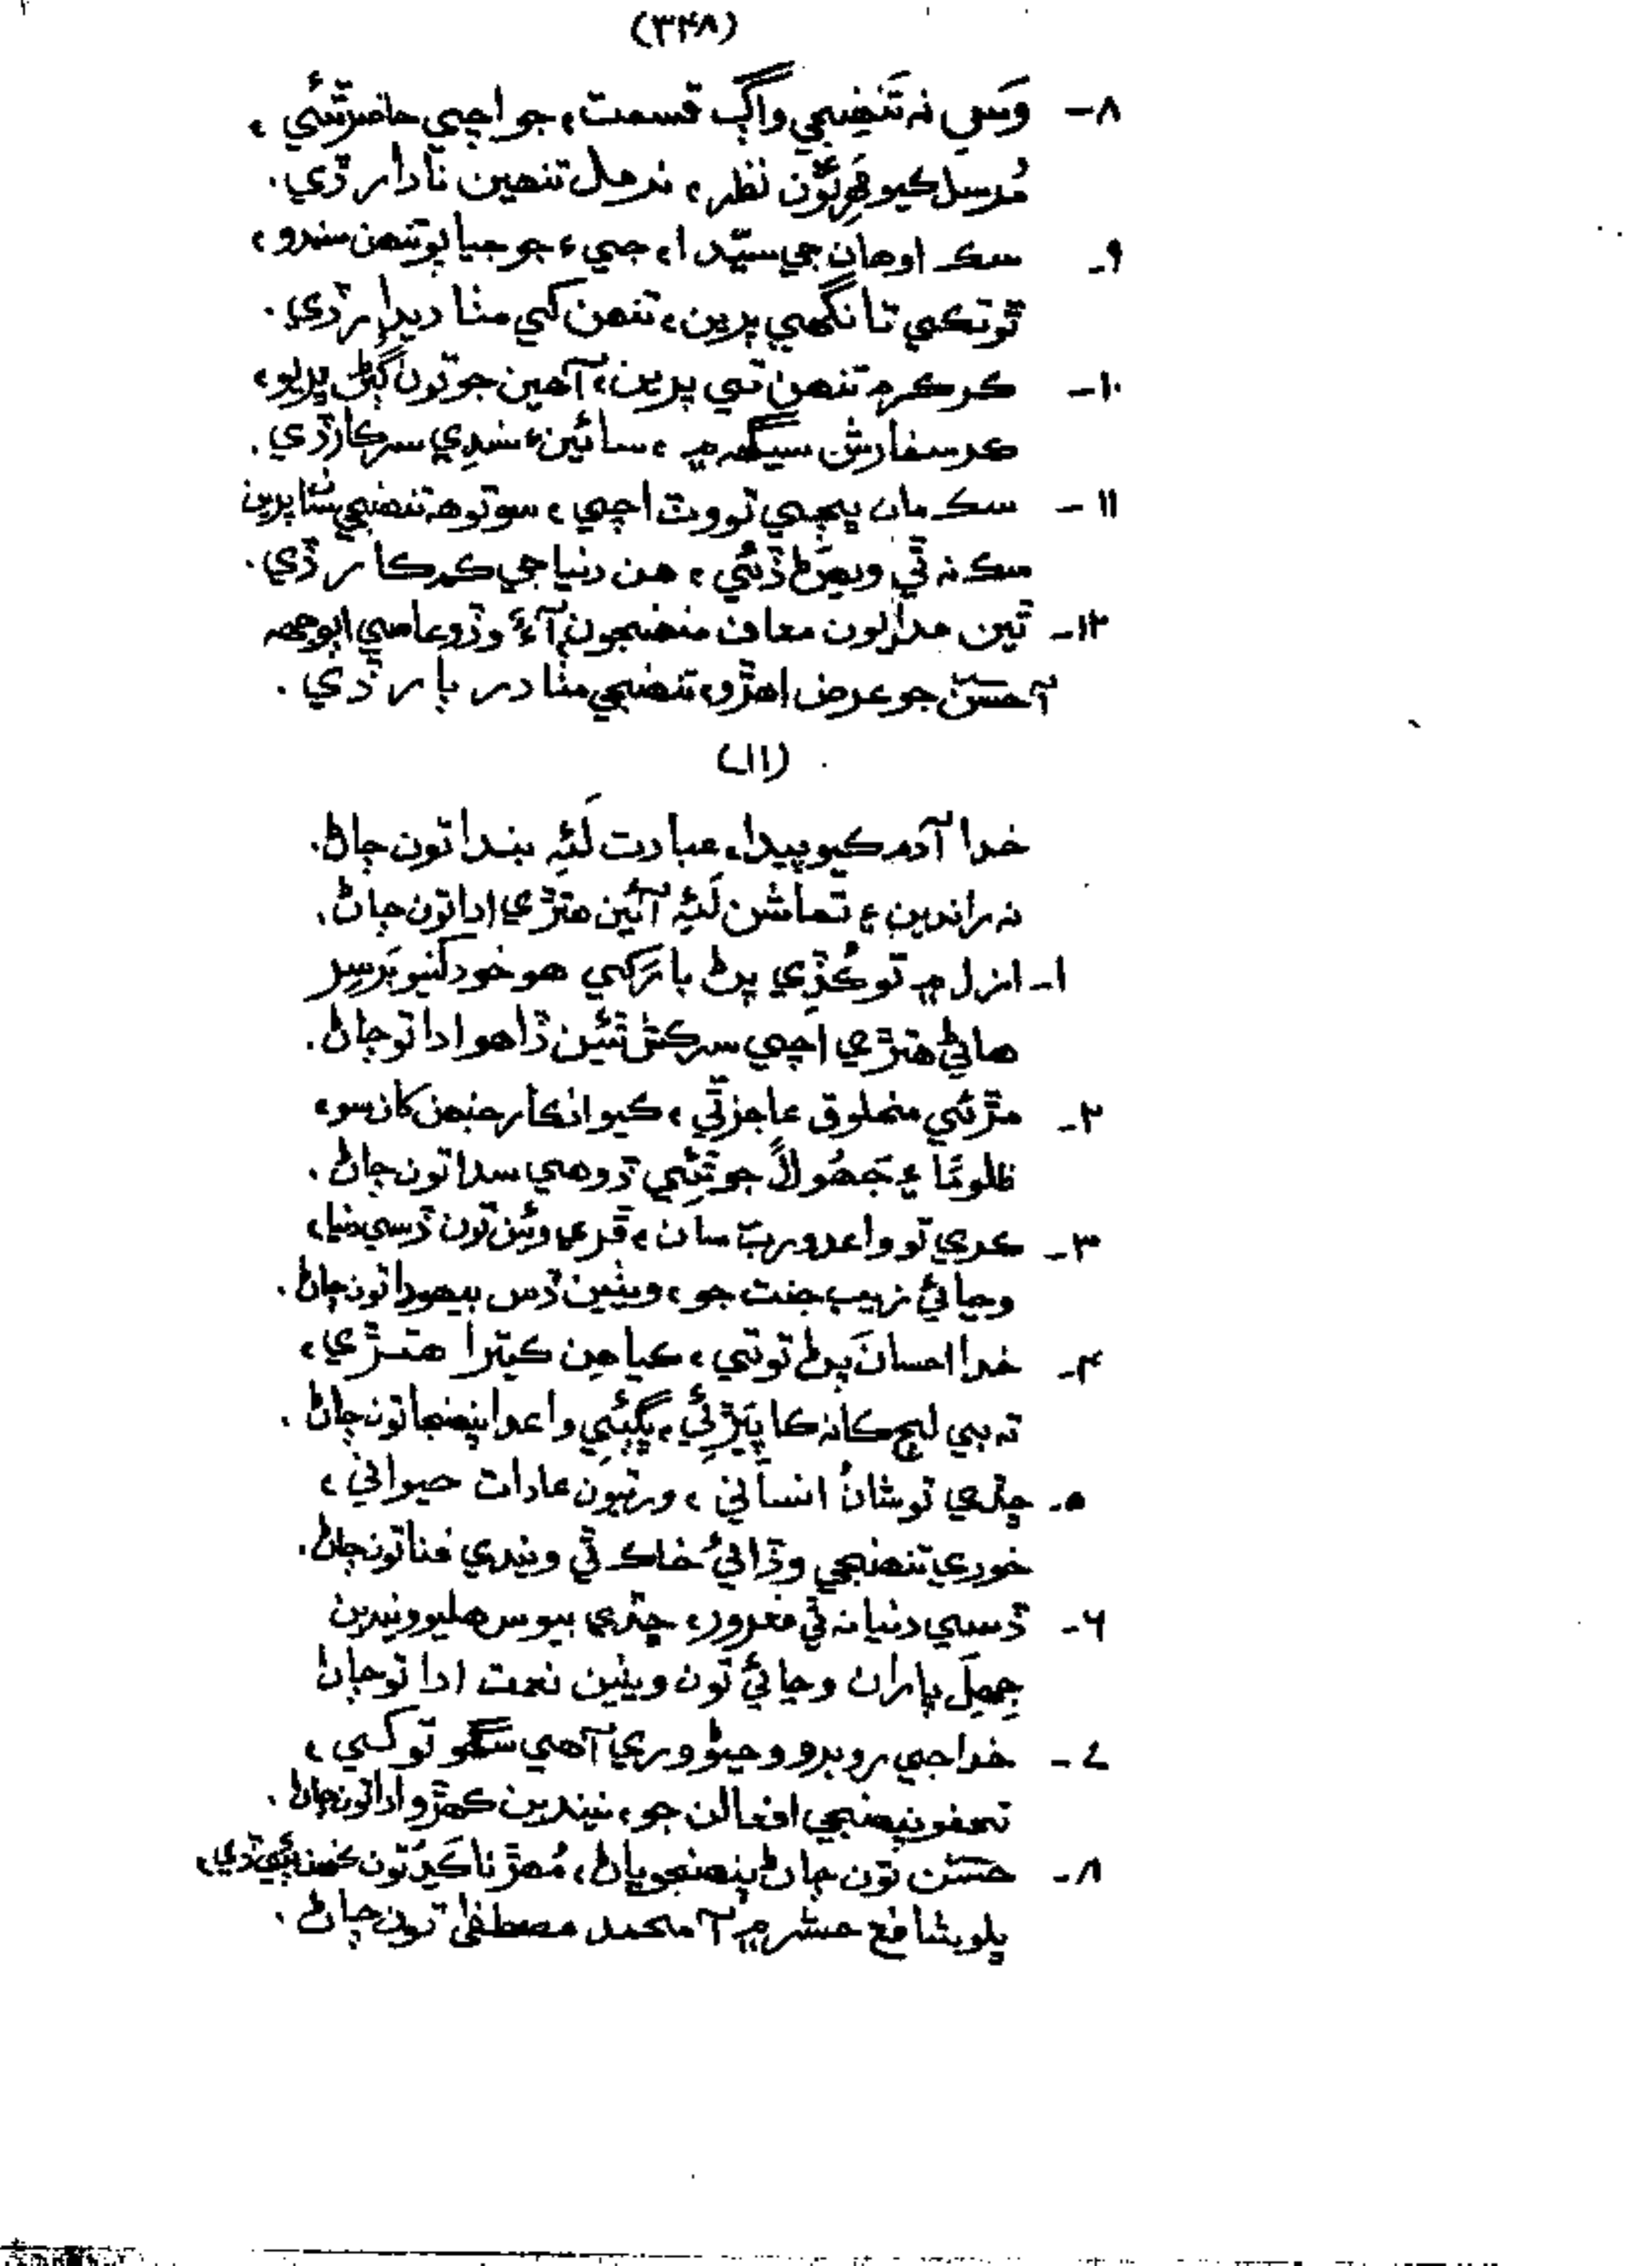 (۳۴۸)
۸- وَسِ نہ تَنهِنجي واڳ قسمت، جو اچي حاضر ٿئي،
مُرسل ڪيو نظر، نرمل تنهين نادار ڏي.
۹- سڪ اوهان جي سيّد ا، جيءَ جو جيا پو تنهن سندو،
ٿو تڪي تانگهي پرين، تنهن کي مٺا ديدار ڏي.
۱۰- ڪر ڪرم تنهن تي پرين، آهين جو تون ڳڻ ڀريو،
ڪر سفارش سيگهہ ۾، سائينءَ سندي سرڪار ڏي.
۱۱- سڪ مان ڀڄي ٿو وٽ اچي، سو توهہ تنهنجي سٺا پرين
سڪ نہ ٿي ويهڻ ڏئي، هن دنيا جي ڪم ڪار ڏي.
۱۲- ٿين مدايون معاف منهنجون، آءٌ وڏو عاصي ابوجهہ
آ حسنؔ جو عرض اهڙو، تنهنجي مٺا دربار ڏي.
(۱۱)
خدا آدم ڪيو پيدا، عبادت لَئہِ بندا تون ڄاڻ.
نہ راندين ۽ تماشن لَئہِ آئين هتڙي ادا تون ڄاڻ.
۱- ازل ۾ تو کُڙي پڻ بار کي هو خود کنيو بَرسِر
هاڻي هتڙي اچي سرڪش ٿئين ڏاهو ادا تو ڄاڻ.
۲- مڙئي مخلوق عاجز ٿي، ڪيو انڪار جنهن کان سو،
ظلومًا ۽ جَهُولاً جو ٿئي ڏوهي سدا تون ڄاڻ.
۳- ڪري تو واعدو ربّ سان، ڦري وئين تون ڏسي دنيا،
وڃائي زيب جنت جو، ويٺين ڏس بيهودا تون ڄاڻ.
۴- خدا احسان پڻ توتي، ڪيا هِن ڪيترا هتڙي،
تہ بي لڄ کانہ کا پَيڙئي، ڀڳئي واعدا پنهنجا تون ڄاڻ.
۵- ڇڏي تو شانُ انساني، ورتيون عادات حيواني،
خودي تنهنجي وڏائيُ خاڪ ٿي ويندي فنا تون ڄاڻ.
۶- ڏسي دنيا نہ ٿي مغرور، ڇڏي بيوس هليو ويندين
جهل ڀاران وڃائي تون ويٺين نعمت ادا تو ڄاڻ
۷- خدا جي روبرو وڃڻو وري آهي سگهو توکي،
تحفو پنهنجي افعالن جو، نيندين ڪهڙو ادا تون ڄاڻ.
۸- حسنؔ تون ڄاڻ پنهنجو پاڻ، مُهڙ نا ڪر تون ڪنهن ٻئي ڏي،
پلو شافع حشر ۾ آ محمد مصطفيٰ تون ڄاڻ.